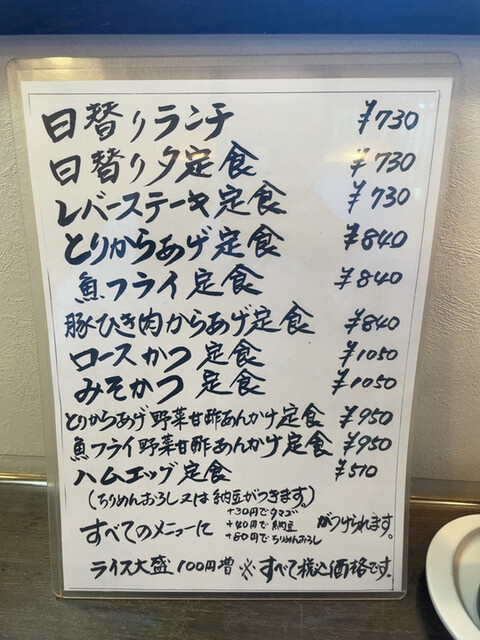 日替りランチ ¥730
日替り夕定食 ¥730
レバーステーキ定食 ¥730
とりからあげ定食 ¥840
魚フライ定食 ¥840
豚ひき肉からあげ定食 ¥840
ロースかつ定食 ¥1050
みそかつ定食 ¥1050
とりからあげ野菜甘酢あんかけ定食 ¥950
魚フライ野菜甘酢あんかけ定食 ¥950
ハムエッグ定食 ¥570
(ちりめんおろし又は納豆がつきます。)
すべてのメニューに
+30円でタマゴ
+40円で納豆
+80円でちりめんおろし
がつけられます。
ライス大盛100円増 ※すべて税込価格です。